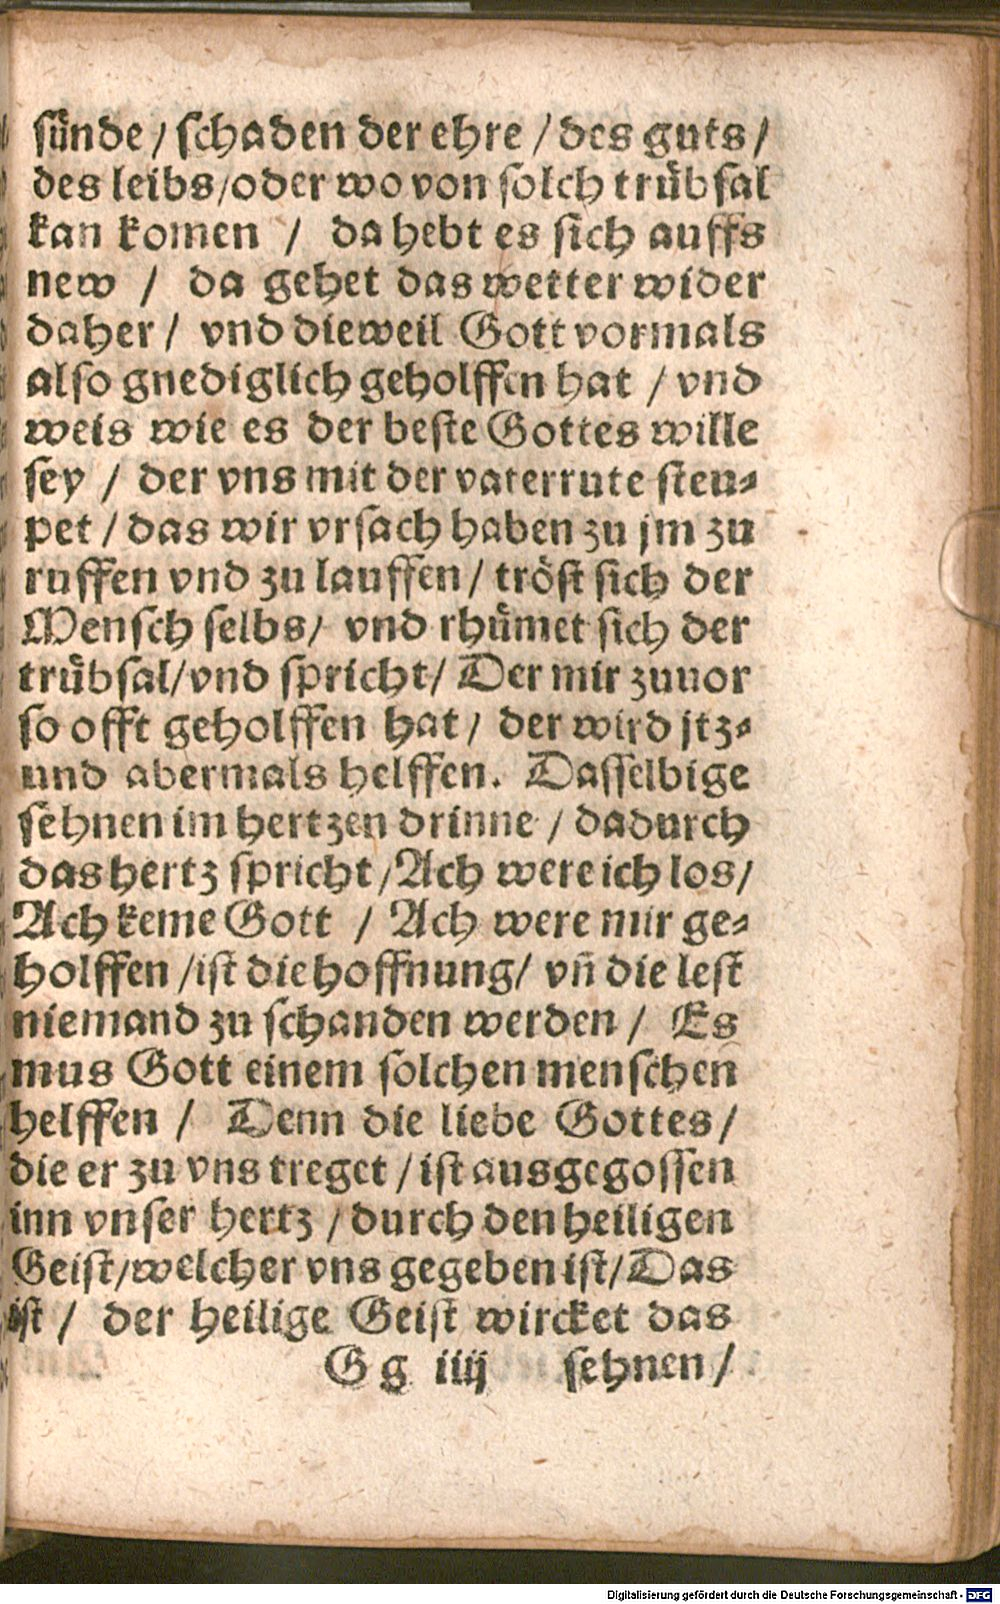 sünde / schaden der ehre / des guts /
des leibs / oder wo von solch trübsal
kan komen / da hebt es sich auffs
new / da gehet das wetter wider
daher / vnd dieweil Gott vormals
also gnediglich geholffen hat / vnd
weis wie es der beste Gottes wille
sey / der vns mit der vaterrute steu-
pet / das wir vrsach haben zu jm zu
ruffen vnd zu lauffen / tröst sich der
Mensch selbs / vnd rhümet sich der
trübsal / vnd spricht / Der mir zuuor
so offt geholffen hat / der wird jtz-
und abermals helffen. Dasselbige
sehnen im hertzen drinne / dadurch
das hertz spricht / Ach were ich los /
Ach keme Gott / Ach were mir ge-
holffen / ist die hoffnung / vn̄ die lest
niemand zu schanden werden / Es
mus Gott einem solchen menschen
helffen / Denn die liebe Gottes /
die er zu vns treget / ist ausgegossen
inn vnser hertz / durch den heiligen
Geist / welcher vns gegeben ist / Das
ist / der heilige Geist wircket das
G g iiij sehnen /
Digitalisierung gefördert durch die Deutsche Forschungsgemeinschaft - DFG